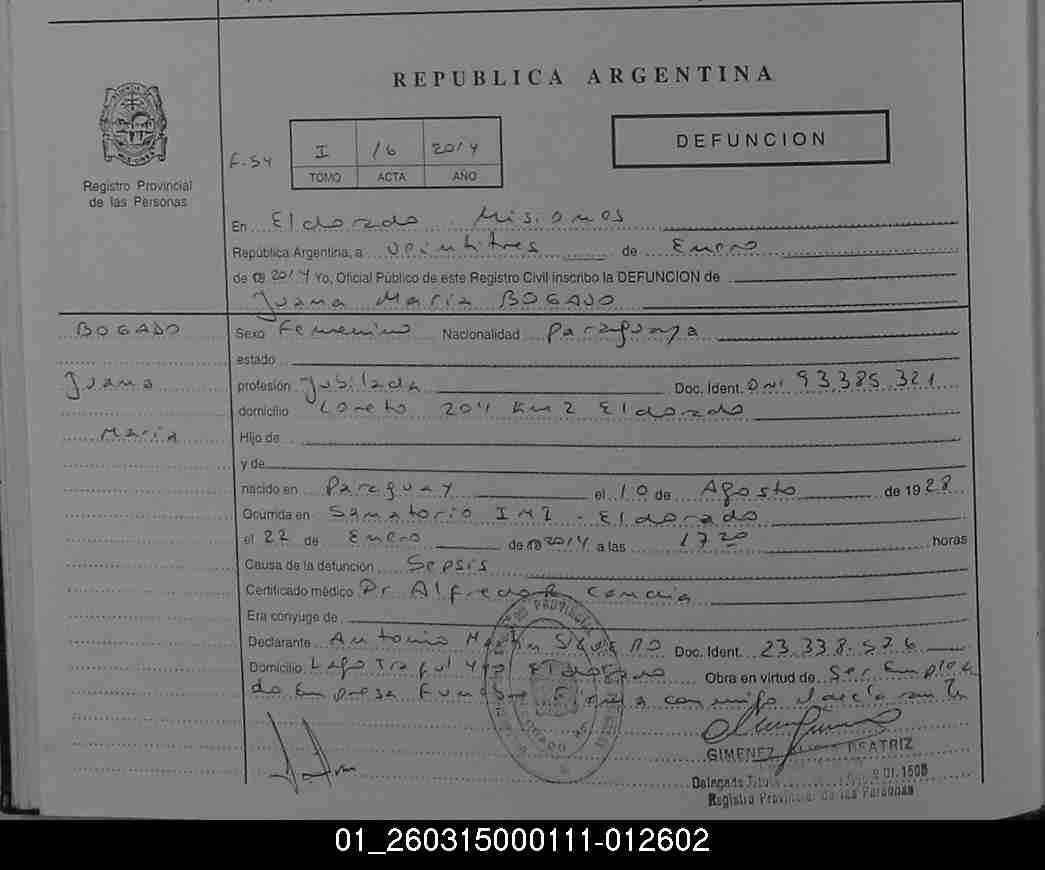 REPUBLICA ARGENTINA
DEFUNCION
F. 54
I 16 2014
TOMO ACTA AÑO
Registro Provincial
de las Personas
En Eldorado Misiones
República Argentina, a veintitres de Enero
de 2014 Yo, Oficial Público de este Registro Civil inscribo la DEFUNCION de
Juana Maria BOGADO
BOGADO
Juana
Maria
Sexo Femenino Nacionalidad Paraguaya
estado
profesión Jubilada Doc. Ident. DNI 93385.321
domicilio Loreto 204 Km 2 Eldorado
Hijo de
y de
nacido en Paraguay el 10 de Agosto de 1928
Ocurrida en Samatorio IMI - Eldorado
el 22 de Enero de 2014 a las 1720 horas
Causa de la defunción Sepsis
Certificado médico Dr Alfredo R
Era cónyuge de
Declarante Antonio Doc. Ident. 23.338.526
Domicilio Lago Eldorado Obra en virtud de Ser Emplea
do Empresa Funebre
GIMENEZ BEATRIZ
Delegada
Registro Provincial de las Personas
01_260315000111-012602